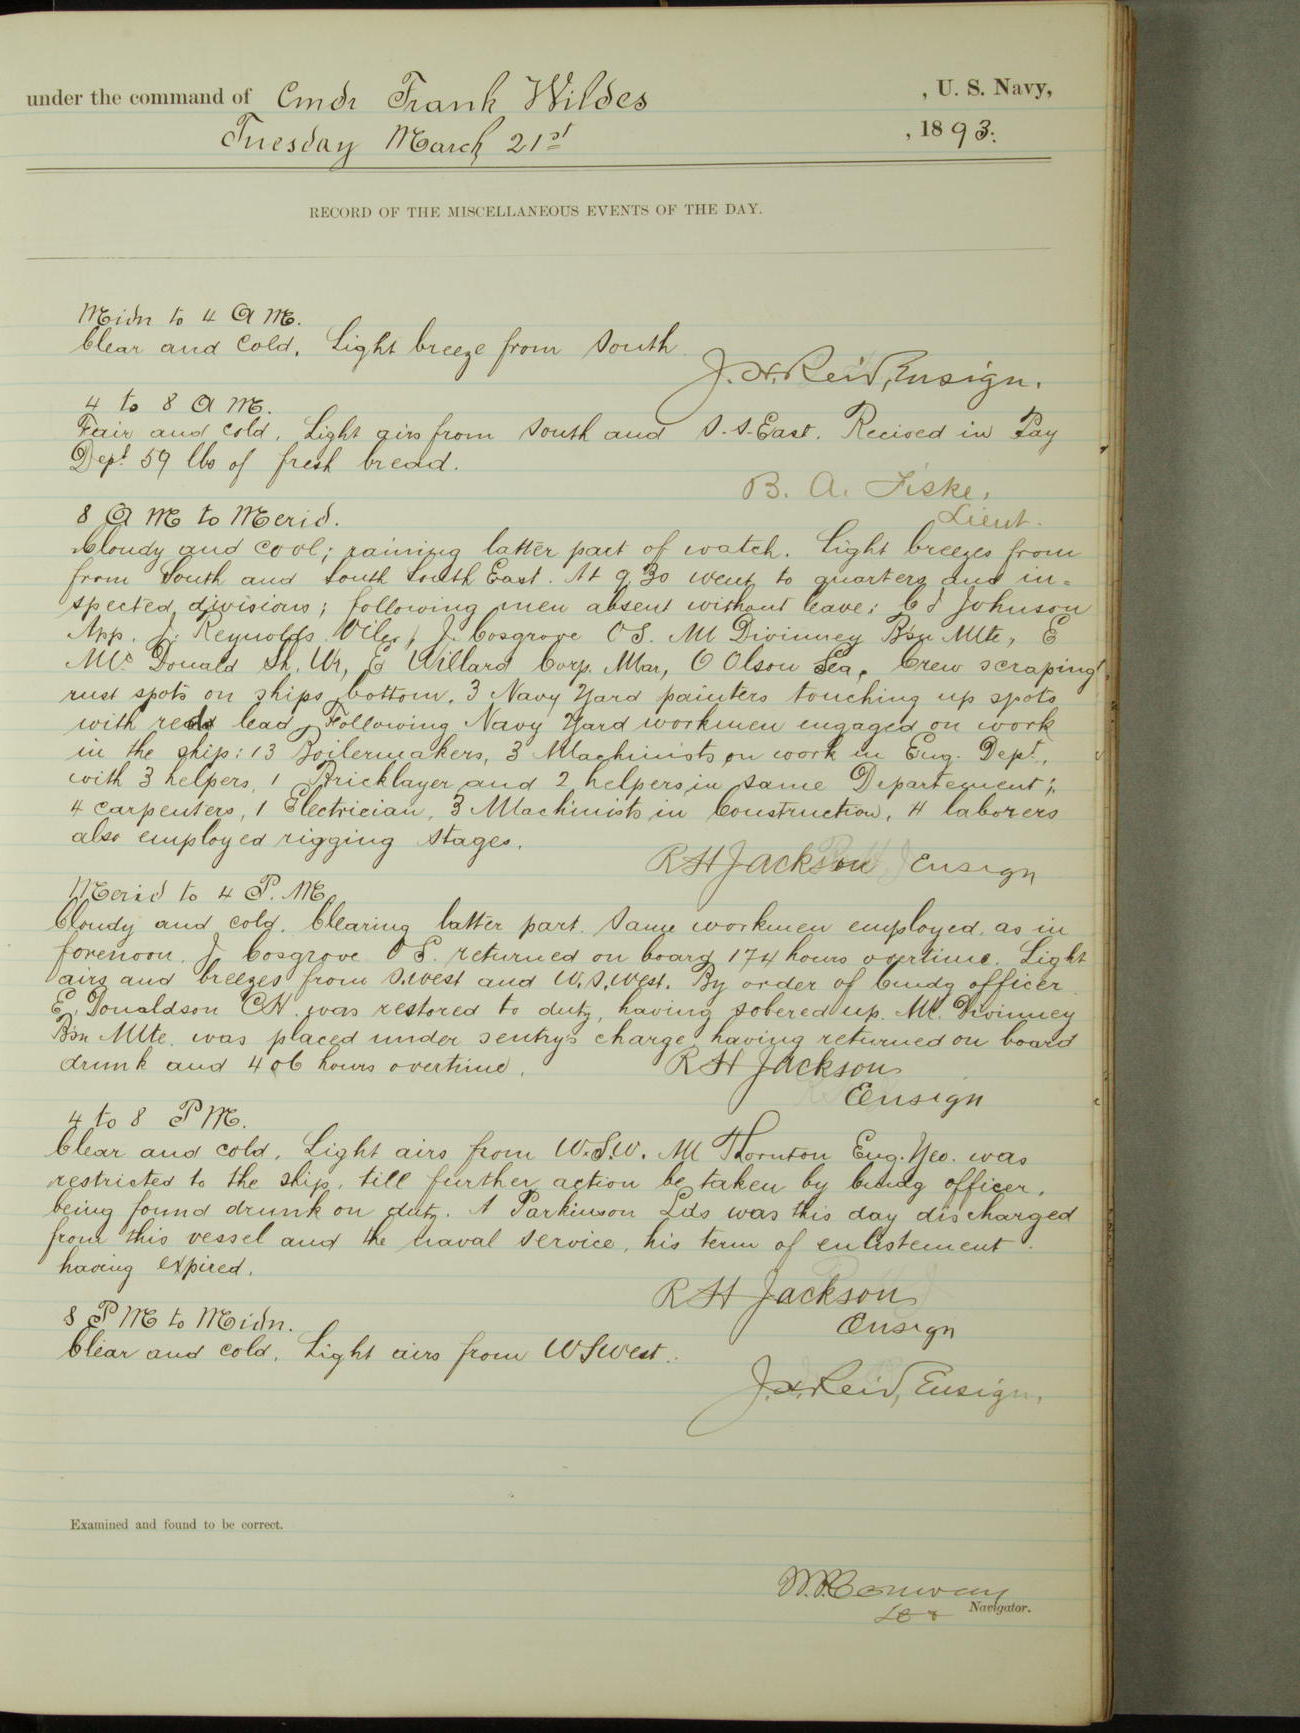 under the command of Cmdr Frank Wildes, U. S. Navy,
Tuesday March 21st, 1893.
RECORD OF THE MISCELLANEOUS EVENTS OF THE DAY.
Midn to 4 A M.
Clear and cold. Light breeze from South
J. H. Reid, Ensign.
4 to 8 A M.
Fair and cold. Light airs from South and S.S.East. Recived in Pay
Dept 59 lbs of fresh bread.
B. A. Fiske,
Lieut.
8 A M to Merid.
Cloudy and cool; raining latter part of watch. Light breezes from
from South and South South East. At 9 30 went to quarters and in=
spected divisions; following men absent without leave: C J Johnson
App. J. Reynolds Oiler, J. Cosgrove OS. M Divinney Bsn Mte, E
McDonald Sh. Wr, E Willard Corp. Mar, O Olson Sea, Crew scraping
rust spots on ships bottom. 3 Navy Yard painters touching up spots
with red lead, Following Navy Yard workmen engaged on work
in the ship: 13 Boilermakers, 3 Machinists on work in Eng. Dept.,
with 3 helpers, 1 Bricklayer and 2 helpers in same Departement;
4 carpenters, 1 Electrician, 3 Machinists in Construction, 4 laborers
also employed rigging stages.
RH Jackson Ensign
Merid to 4 P. M.
Cloudy and cold. Clearing latter part. Same workmen employed as in
forenoon. J Cosgrove OS. returned on board 174 hours overtime. Light
airs and breezes from S.west and W.S.West. By order of Cmdg officer
E. Donaldson CH. was restored to duty, having sobered up. M. Divinney
Bsn Mte. was placed under sentry's charge having returned on board
drunk and 406 hours overtime.
RH Jackson
Ensign
4 to 8 PM.
Clear and cold. Light airs from W.S.W. M Thornton Eng. Yeo. was
restricted to the ship, till further action be taken by Cmdg officer,
being found drunk on duty. A Parkinson Lds was this day discharged
from this vessel and the naval service, his term of enlistement
having expired.
RH Jackson
Ensign
8 P M to Midn.
Clear and cold. Light airs from WSWest.
J. H. Reid, Ensign.
Examined and found to be correct.
Conway
Navigator.